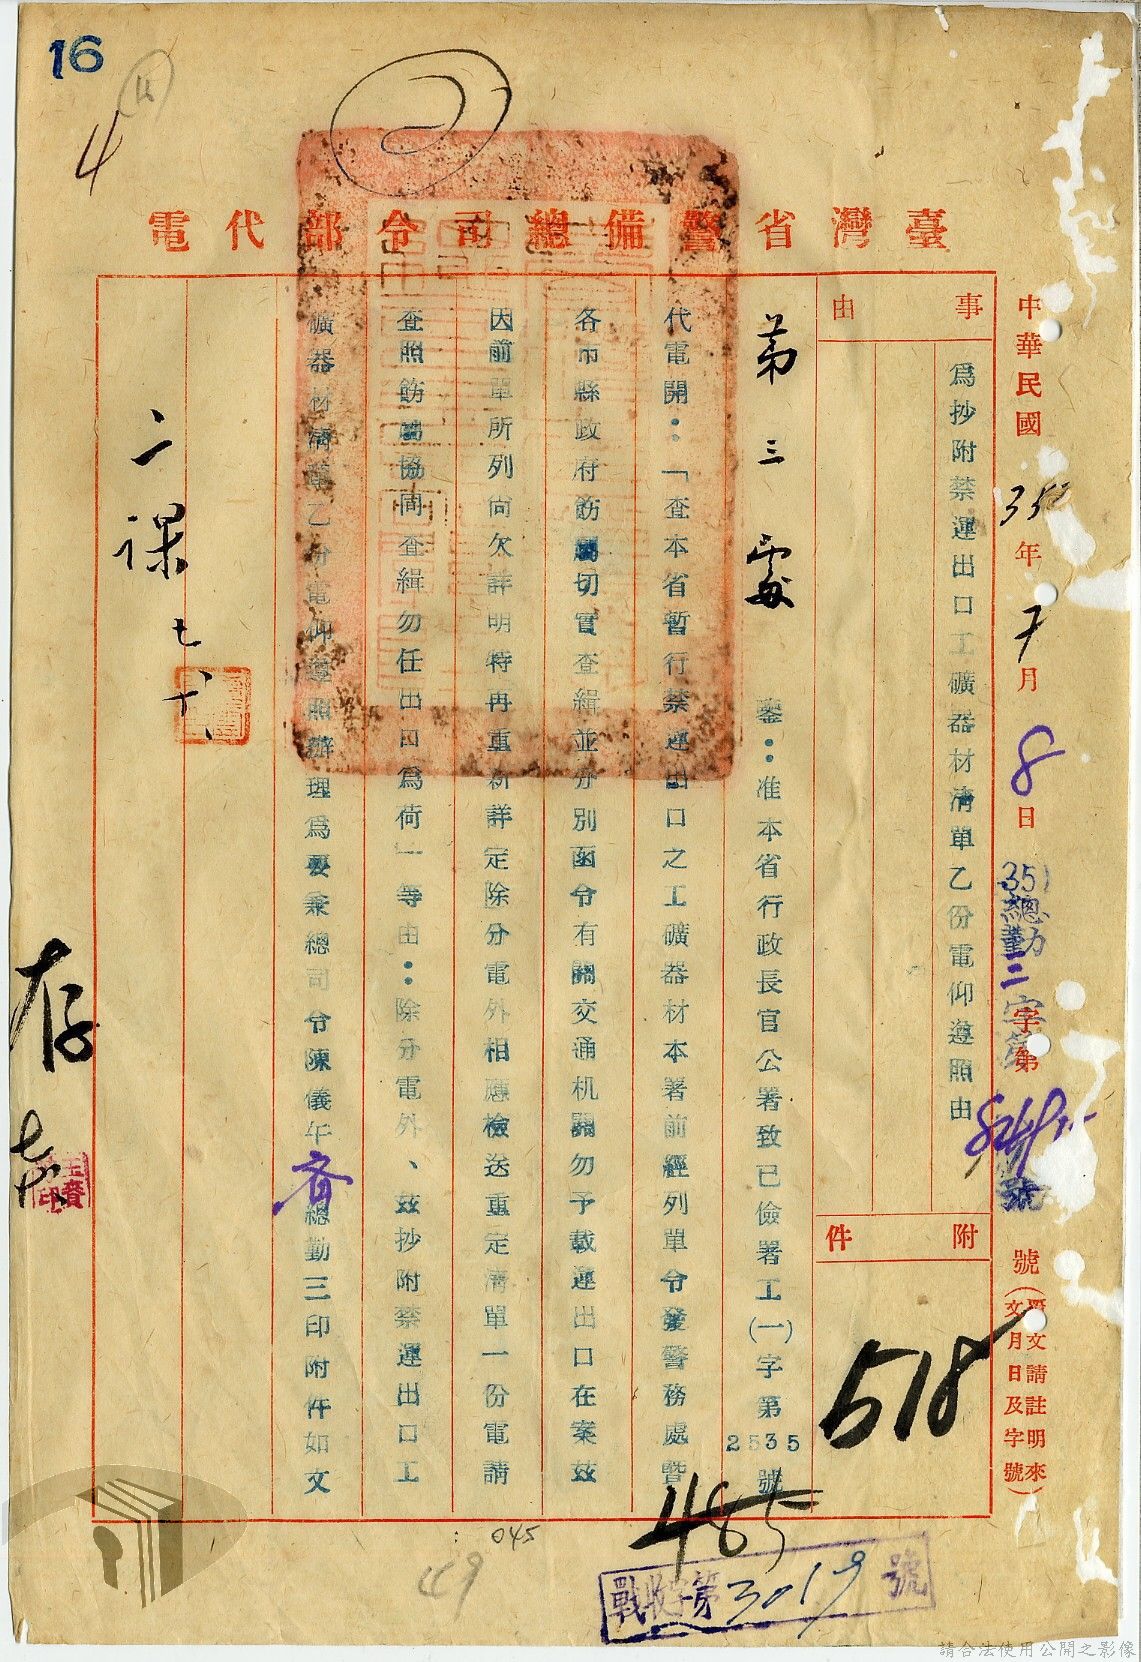 16
4
臺灣省警備總司令部代電
中華民國35年7月8日
35總勤三字第
號
號(覆文請註明來文月日及字號)
事由
為抄附禁運出口工礦器材清單乙份電仰遵照由
附件
518
第三處
鑒：准本省行政長官公署致已儉署工(一)字第2535號
代電開：「查本省暫行禁運出口之工礦器材本署前經列單令發警務處暨
各市縣政府飭屬切實查緝並分別函令有關交通机關勿予載運出口在案茲
因前單所列尚欠詳明特再重新詳定除分電外相應檢送重定清單一份電請
查照飭屬協同查緝勿任出口為荷」等由：除分電外、茲抄附禁運出口工
礦器材清單乙份電仰遵照辦理為要兼總司令陳儀午齊總勤三印附件如文
二課
存
485
戰收字第3019號
045
49
請合法使用公開之影像